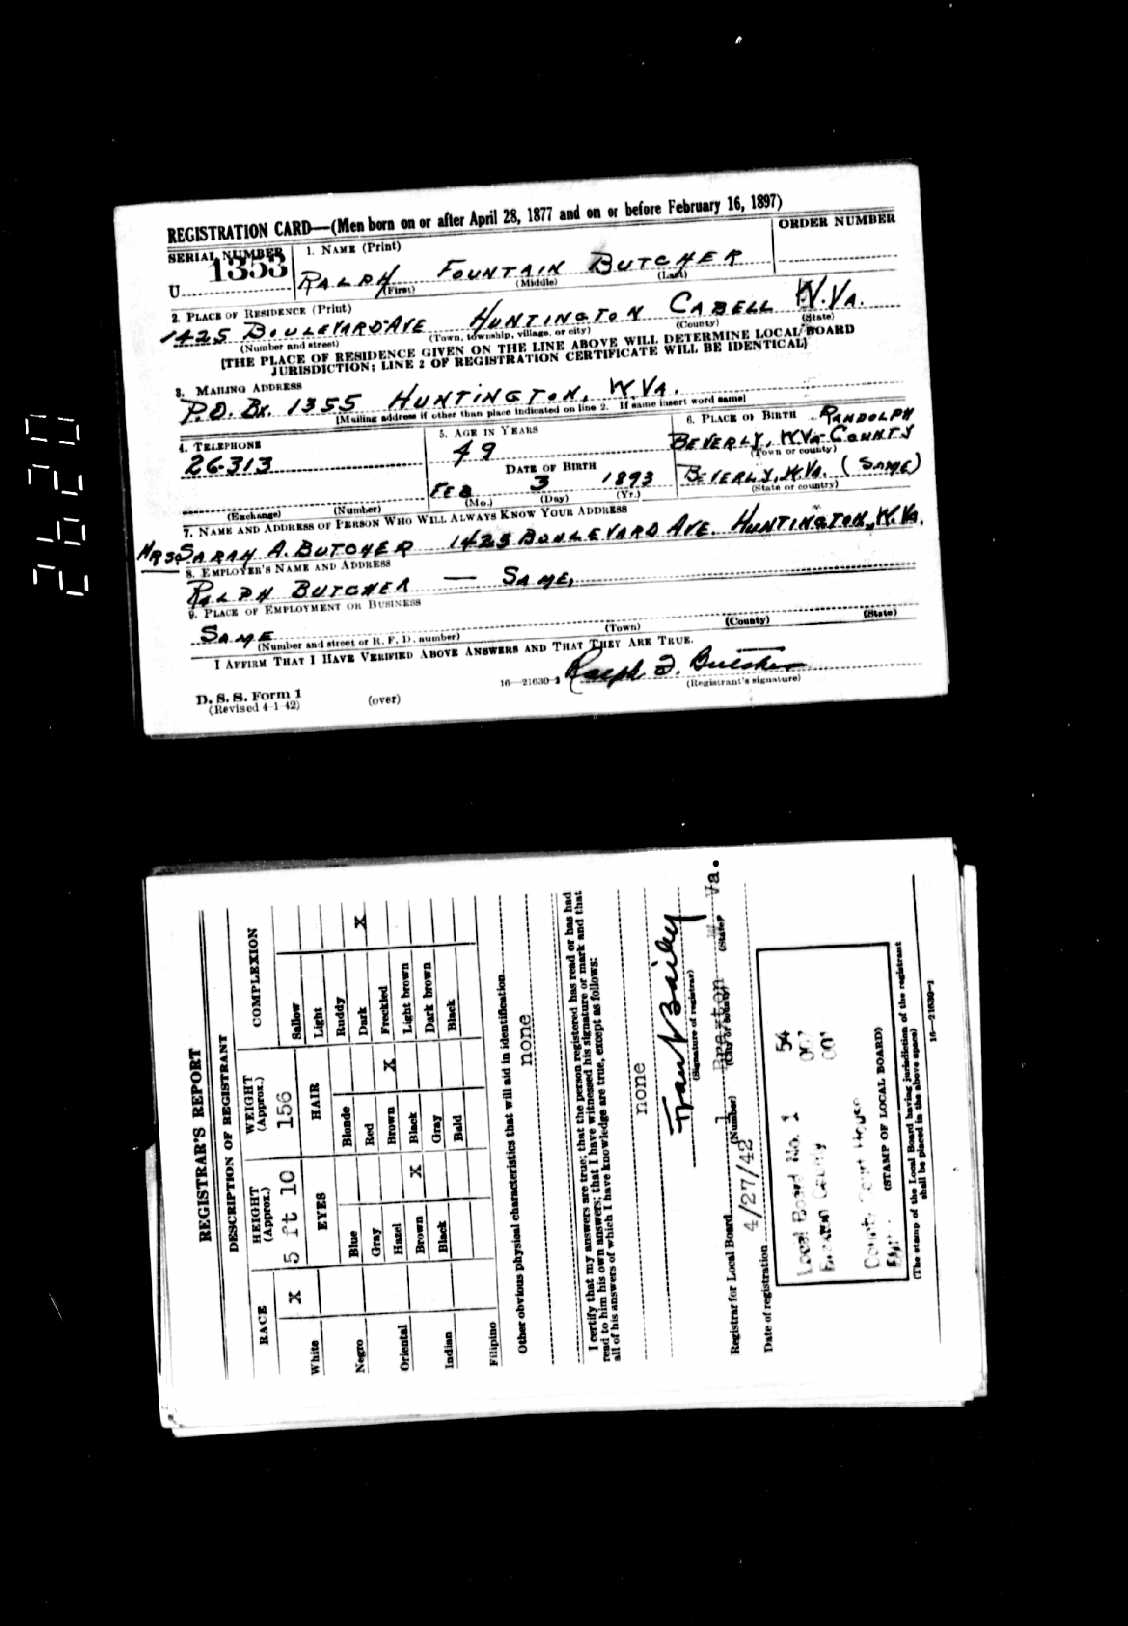 REGISTRATION CARD—(Men born on or after April 28, 1877 and on or before February 16, 1897)
SERIAL NUMBER
1. NAME (Print)
ORDER NUMBER
U 1353
RALPH FOUNTAIN BUTCHER
(First) (Middle) (Last)
2. PLACE OF RESIDENCE (Print)
1425 BOULEVARD AVE HUNTINGTON CABELL W.VA.
(Number and street) (Town, township, village, or city) (County) (State)
[THE PLACE OF RESIDENCE GIVEN ON THE LINE ABOVE WILL DETERMINE LOCAL BOARD
JURISDICTION; LINE 2 OF REGISTRATION CERTIFICATE WILL BE IDENTICAL]
3. MAILING ADDRESS
P.O. BX. 1355 HUNTINGTON, W.VA.
[Mailing address if other than place indicated on line 2. If same insert word same]
4. TELEPHONE
5. AGE IN YEARS
6. PLACE OF BIRTH RANDOLPH
26-313
49
BEVERLY, W.VA. COUNTY
(Town or county)
DATE OF BIRTH
FEB 3 1893
BEVERLY, W.VA. (SAME)
(Exchange) (Number)
(Mo.) (Day) (Yr.)
(State or country)
7. NAME AND ADDRESS OF PERSON WHO WILL ALWAYS KNOW YOUR ADDRESS
MRS SARAH A. BUTCHER 1425 BOULEVARD AVE. HUNTINGTON, W.VA.
8. EMPLOYER'S NAME AND ADDRESS
RALPH BUTCHER — SAME,
9. PLACE OF EMPLOYMENT OR BUSINESS
SAME
(Number and street or R. F. D. number) (Town) (County) (State)
I AFFIRM THAT I HAVE VERIFIED ABOVE ANSWERS AND THAT THEY ARE TRUE.
Ralph F. Butcher
D. S. S. Form 1
(Revised 4-1-42)
(over)
16—21630-2
(Registrant's signature)
02972
REGISTRAR'S REPORT
DESCRIPTION OF REGISTRANT
RACE
HEIGHT (Approx.)
WEIGHT (Approx.)
COMPLEXION
White X
5 ft 10
156
Sallow
EYES
HAIR
Light
Negro
Blue
Blonde
Ruddy
Gray
Red
Dark X
Oriental
Hazel
Brown X
Freckled
Brown X
Black
Light brown
Indian
Black
Gray
Dark brown
Bald
Black
Filipino
Other obvious physical characteristics that will aid in identification
none
I certify that my answers are true; that the person registered has read or has had
read to him his own answers; that I have witnessed his signature or mark and that
all of his answers of which I have knowledge are true, except as follows:
none
Frank Bailey
(Signature of registrar)
Registrar for Local Board 1 Braxton W Va.
(Number) (City or county) (State)
Date of registration 4/27/42
Local Board No. 1 54
Braxton County 007
County Court House 001
(STAMP OF LOCAL BOARD)
(The stamp of the Local Board having jurisdiction of the registrant
shall be placed in the above space)
16—21630-1